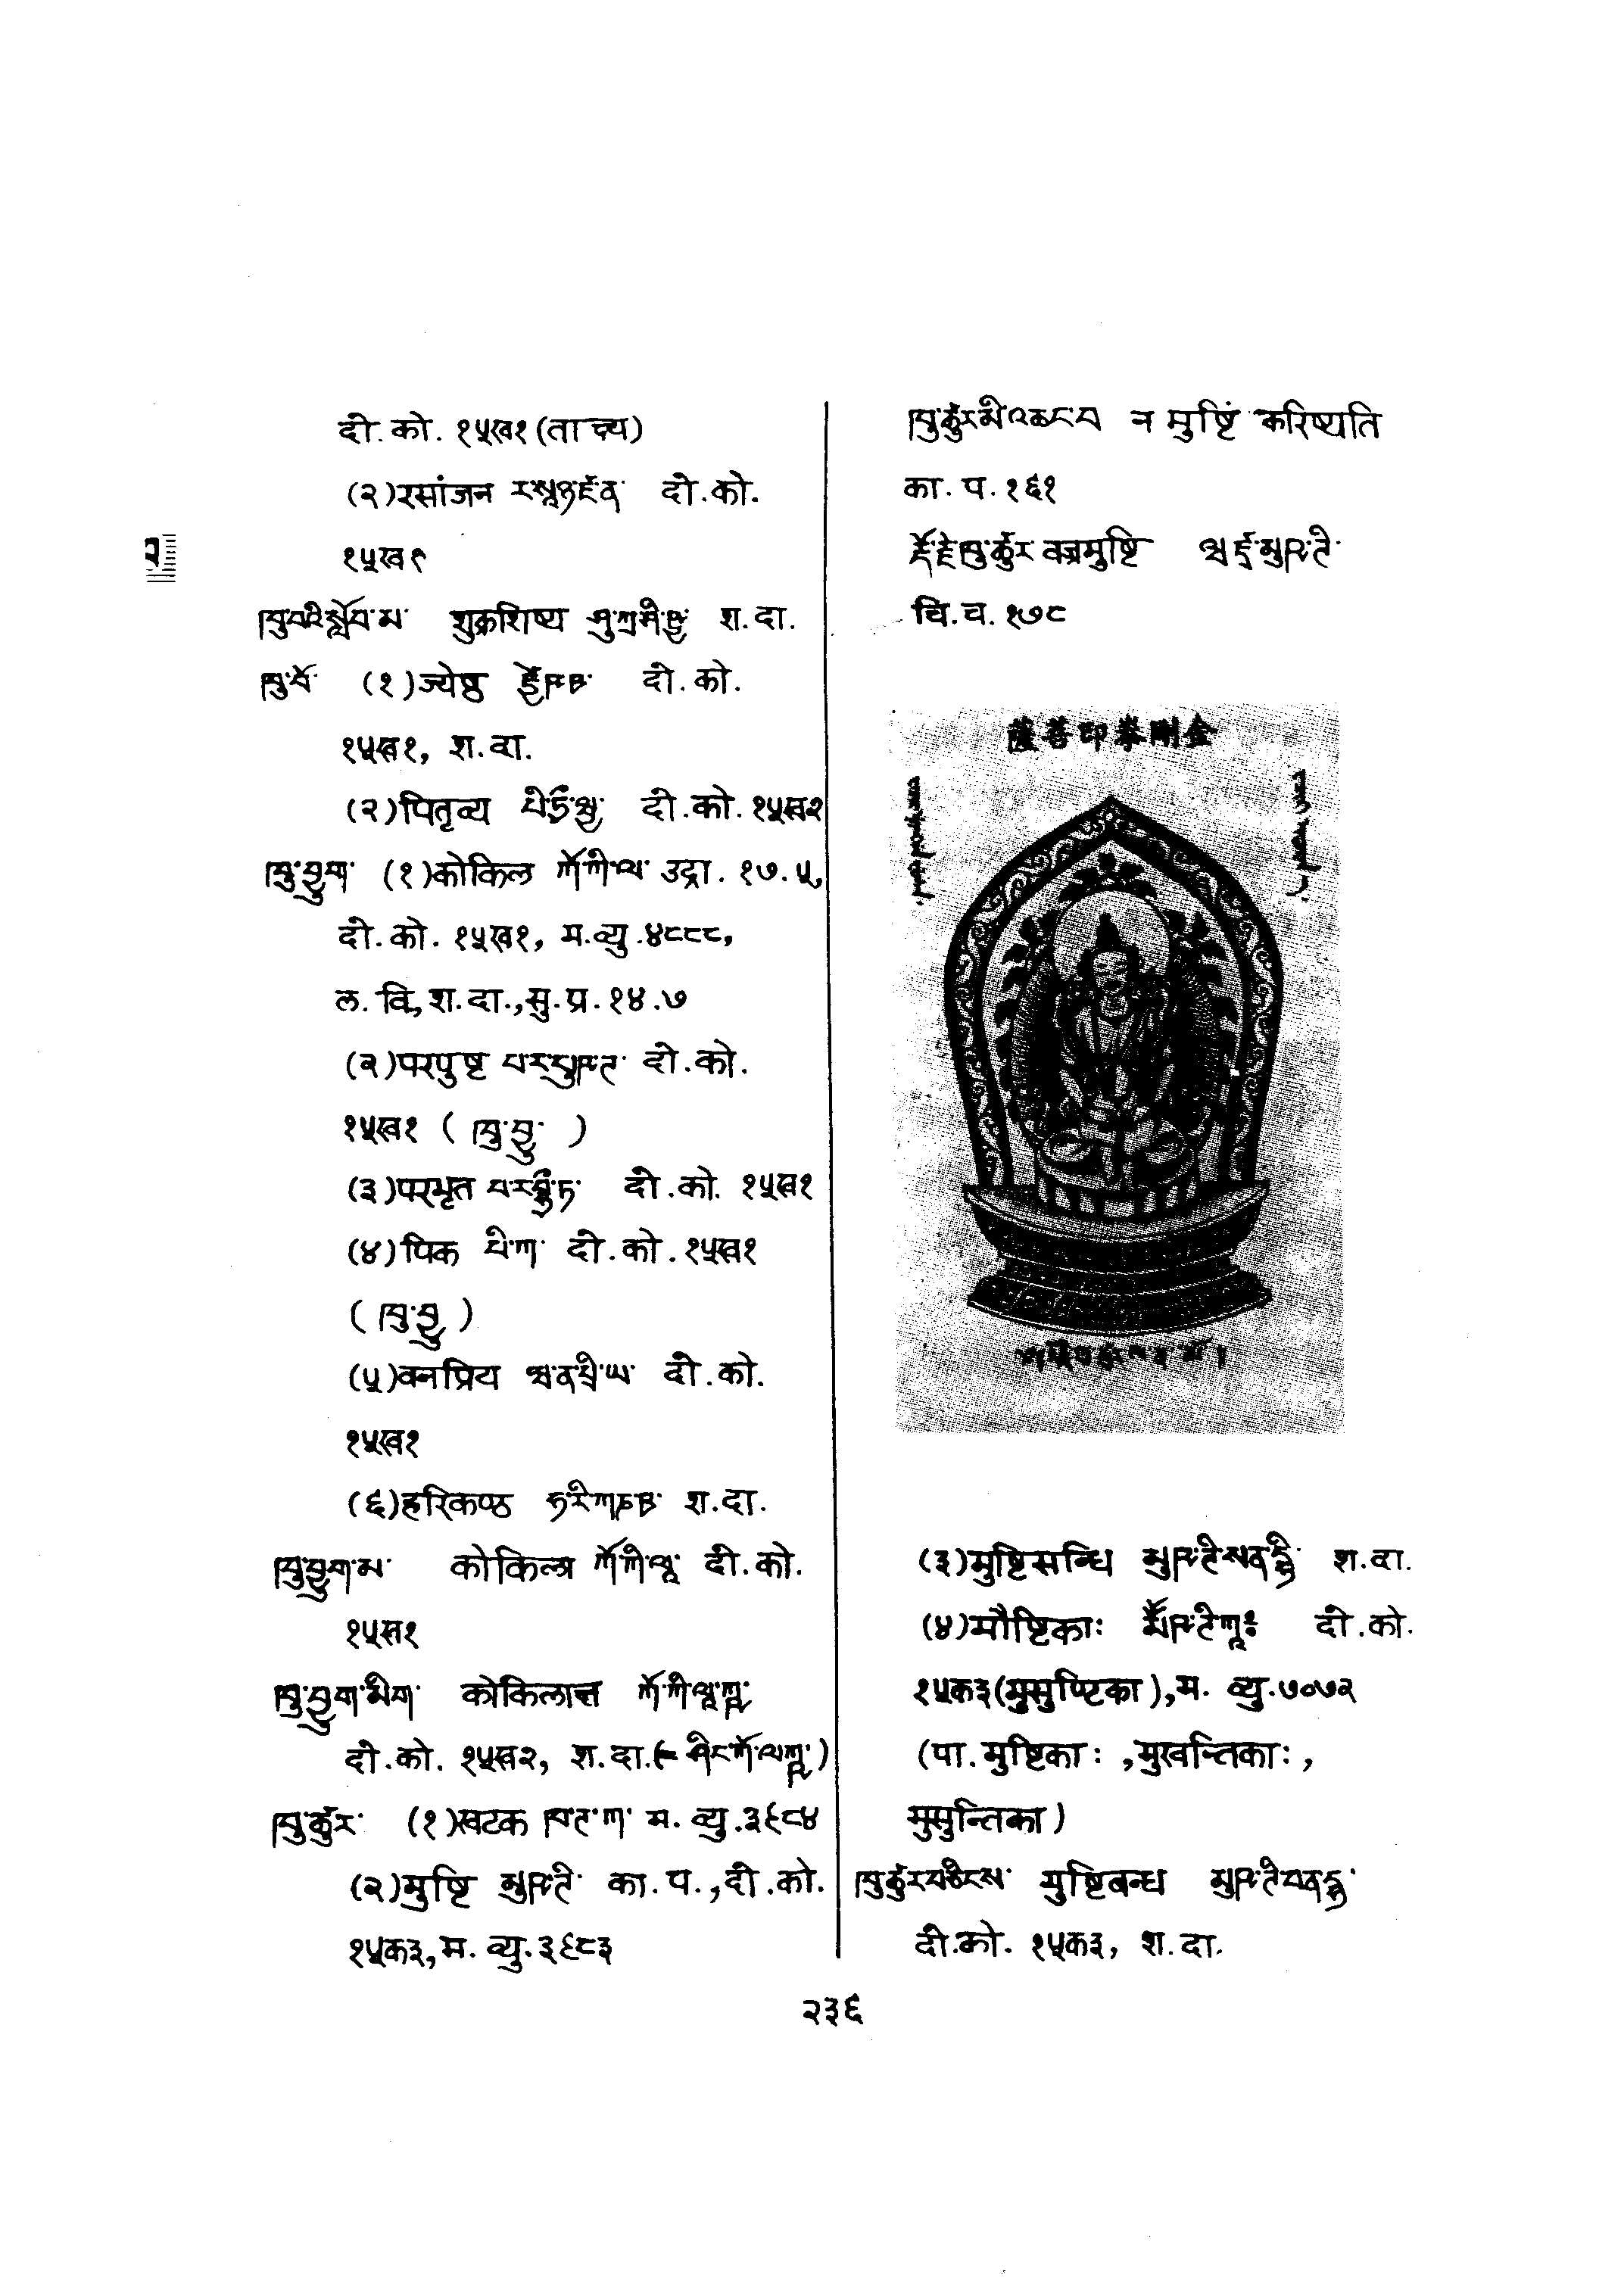 दी.को. १५ख१(ताच्य)
(२)रसांजन ར་སཱཉྫ་ན་ दी.को.
१५ख१
ཁུ་བའི་སློབ་མ་ शुक्रशिष्य ཤུ་ཀྲ་ཤི་ཥྱ श.दा.
ཁུ་བོ་ (१)ज्येष्ठ ཛྱེ་ཥྛ་ दी.को.
१५ख१, श.दा.
(२)पितृव्य པི་ཏྲྀ་ཝྱ་ दी.को.१५ख२
ཁུ་བྱུག་ (१)कोकिल ཀོ་ཀི་ལ་ उद्रा. १७.५,
दी.को. १५ख१, म.व्यु.४८८८,
ल.वि,श.दा.,सु.प्र.१४.७
(२)परपुष्ट པ་ར་པུ་ཥྚ་ दी.को.
१५ख१ ( ཁུ་བྱུ་ )
(३)परभृत པ་ར་བྷྲྀ་ཏ दी.को. १५ख१
(४)पिक པི་ཀ་ दी.को.१५ख१
( ཁུ་བྱུ )
(५)वनप्रिय ཝ་ན་པྲི་ཡ་ दी.को.
१५ख१
(६)हरिकण्ठ ཧ་རི་ཀཎྛ་ श.दा.
ཁུ་བྱུག་མ་ कोकिला ཀོ་ཀི་ལཱ་ दी.को.
१५ख१
ཁུ་བྱུག་མིག་ कोकिलाक्ष ཀོ་ཀི་ལཱ་ཀྵ་
दी.को. १५ख२, श.दा.(= ཤིང་ཀོ་ལ་ཀྵ་)
ཁུ་ཚུར་ (१)खटक ཁ་ཊ་ཀ་ म.व्यु.३९८४
(२)मुष्टि མུ་ཥྚི་ का.प.,दी.को.
१५क३,म.व्यु.३९८३
ཁུ་ཚུར་མི་འཆང་བ न मुष्टिं करिष्यति
का.प.१६१
རྡོ་རྗེ་ཁུ་ཚུར वज्रमुष्टि ཝཛྲ་མུ་ཥྚི་
चि.च. १७८
金剛拳印菩薩
(३)मुष्टिसन्धि མུ་ཥྚི་སནྡྷི་ श.दा.
(४)मौष्टिकाः མཽ་ཥྚི་ཀཱཿ दी.को.
१५क३(मुसुण्टिका),म.व्यु.७०७२
(पा.मुष्टिकाः,मुखन्तिकाः,
मुसुन्तिका)
ཁུ་ཚུར་བཅིངས་ मुष्टिबन्ध མུ་ཥྚི་བནྡྷ་
दी.को. १५क३, श.दा.
२३६